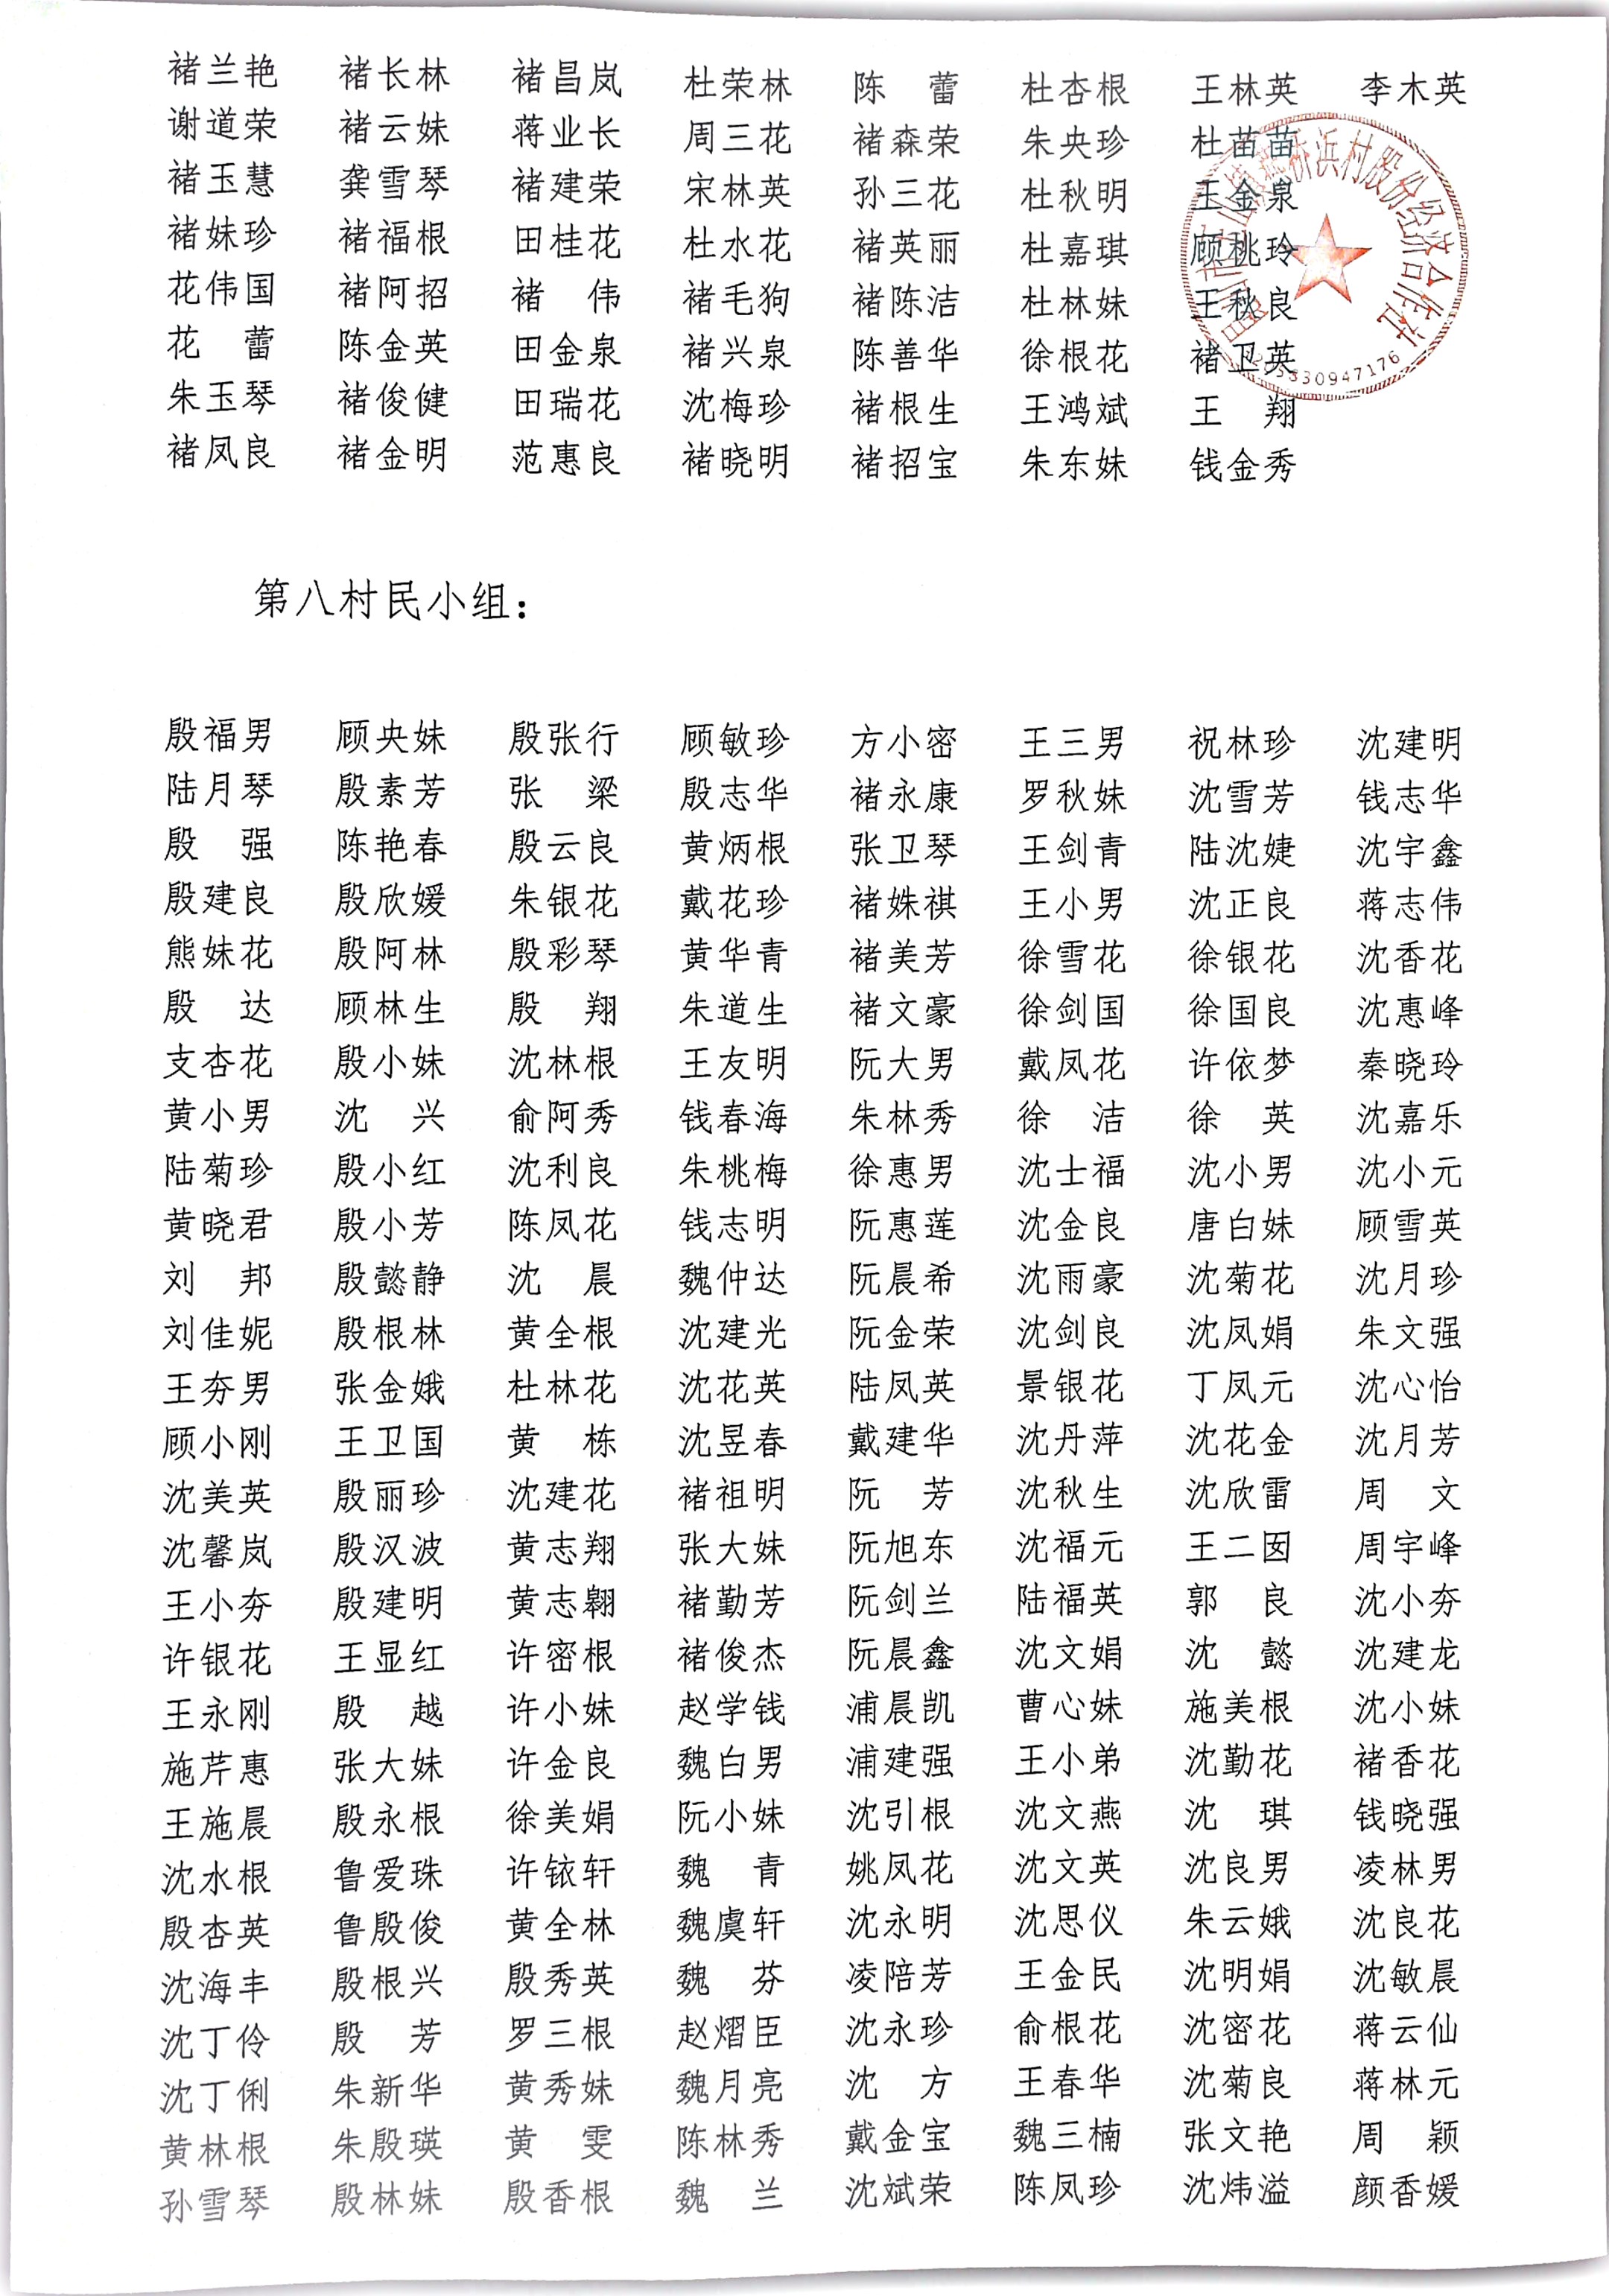 褚兰艳 褚长林 褚昌岚 杜荣林 陈 蕾 杜杏根 王林英 李木英
谢道荣 褚云妹 蒋业长 周三花 褚森荣 朱央珍 杜苗苗
褚玉慧 龚雪琴 褚建荣 宋林英 孙三花 杜秋明 王金泉
褚妹珍 褚福根 田桂花 杜水花 褚英丽 杜嘉琪 顾桃玲
花伟国 褚阿招 褚 伟 褚毛狗 褚陈洁 杜林妹 王秋良
花 蕾 陈金英 田金泉 褚兴泉 陈善华 徐根花 褚卫英
朱玉琴 褚俊健 田瑞花 沈梅珍 褚根生 王鸿斌 王 翔
褚凤良 褚金明 范惠良 褚晓明 褚招宝 朱东妹 钱金秀
桥浜村股份经济合作社
第八村民小组：
殷福男 顾央妹 殷张行 顾敏珍 方小密 王三男 祝林珍 沈建明
陆月琴 殷素芳 张 梁 殷志华 褚永康 罗秋妹 沈雪芳 钱志华
殷 强 陈艳春 殷云良 黄炳根 张卫琴 王剑青 陆沈婕 沈宇鑫
殷建良 殷欣媛 朱银花 戴花珍 褚姝祺 王小男 沈正良 蒋志伟
熊妹花 殷阿林 殷彩琴 黄华青 褚美芳 徐雪花 徐银花 沈香花
殷 达 顾林生 殷 翔 朱道生 褚文豪 徐剑国 徐国良 沈惠峰
支杏花 殷小妹 沈林根 王友明 阮大男 戴凤花 许依梦 秦晓玲
黄小男 沈 兴 俞阿秀 钱春海 朱林秀 徐 洁 徐 英 沈嘉乐
陆菊珍 殷小红 沈利良 朱桃梅 徐惠男 沈士福 沈小男 沈小元
黄晓君 殷小芳 陈凤花 钱志明 阮惠莲 沈金良 唐白妹 顾雪英
刘 邦 殷懿静 沈 晨 魏仲达 阮晨希 沈雨豪 沈菊花 沈月珍
刘佳妮 殷根林 黄全根 沈建光 阮金荣 沈剑良 沈凤娟 朱文强
王夯男 张金娥 杜林花 沈花英 陆凤英 景银花 丁凤元 沈心怡
顾小刚 王卫国 黄 栋 沈昱春 戴建华 沈丹萍 沈花金 沈月芳
沈美英 殷丽珍 沈建花 褚祖明 阮 芳 沈秋生 沈欣雷 周 文
沈馨岚 殷汉波 黄志翔 张大妹 阮旭东 沈福元 王二囡 周宇峰
王小夯 殷建明 黄志翱 褚勤芳 阮剑兰 陆福英 郭 良 沈小夯
许银花 王显红 许密根 褚俊杰 阮晨鑫 沈文娟 沈 懿 沈建龙
王永刚 殷 越 许小妹 赵学钱 浦晨凯 曹心妹 施美根 沈小妹
施芹惠 张大妹 许金良 魏白男 浦建强 王小弟 沈勤花 褚香花
王施晨 殷永根 徐美娟 阮小妹 沈引根 沈文燕 沈 琪 钱晓强
沈水根 鲁爱珠 许铱轩 魏 青 姚凤花 沈文英 沈良男 凌林男
殷杏英 鲁殷俊 黄全林 魏虞轩 沈永明 沈思仪 朱云娥 沈良花
沈海丰 殷根兴 殷秀英 魏 芬 凌陪芳 王金民 沈明娟 沈敏晨
沈丁伶 殷 芳 罗三根 赵熠臣 沈永珍 俞根花 沈密花 蒋云仙
沈丁俐 朱新华 黄秀妹 魏月亮 沈 方 王春华 沈菊良 蒋林元
黄林根 朱殷瑛 黄 雯 陈林秀 戴金宝 魏三楠 张文艳 周 颖
孙雪琴 殷林妹 殷香根 魏 兰 沈斌荣 陈凤珍 沈炜溢 颜香媛